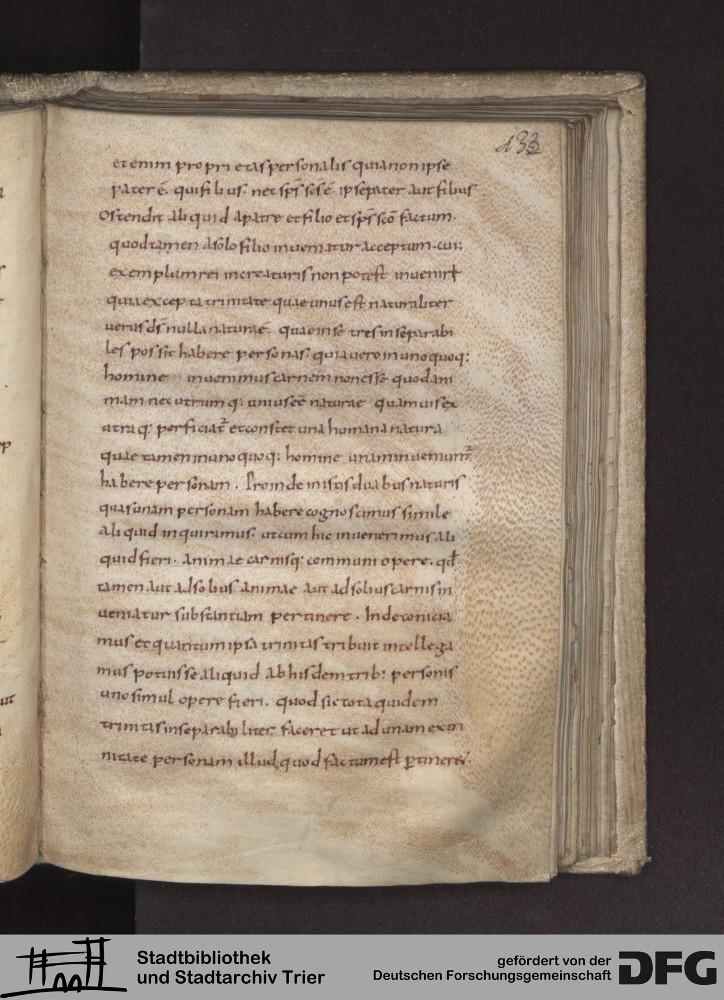 133
et enim proprietas personalis quia non ipse
pater ē. qui filius. nec sp̄s sc̄s ē. ipse pater aut filius
Ostendit aliquid a patre et filio et sp̄s sc̄o factum.
quod tamen a solo filio inveniatur acceptum. cui;
exemplum rei in creaturis non potest inveniri
quia excepta trinitate quae unus est naturaliter
verus d̄s nulla natura ē. quae in se tres inseparabi
les possit habere personas. quia vero in uno quoq;
homine invenimus carnem non esse quod ani
mam nec utrumq; unius eē naturae quamvis ex
utraq; perficiat̄ et constet una humana natura
quae tamen in uno quoq; homine unam inveniunt̄
habere personam. Proinde in istis duabus naturis
quas unam personam habere cognoscimus simile
aliquid inquiramus. ut cum hic invenerimus ali
quid fieri. animae carnisq; communi opere. qd̄
tamen aut ad solius animae aut ad solius carnis in
veniatur substantiam pertinere. Inde conicia
mus et quantum ipsa trinitas tribuit intellega
mus potuisse aliquid ab hisdem trib; personis
uno simul opere fieri. quod sic tota quidem
trinitas inseparabiliter faceret ut ad unam ex tri
nitate personam illud quod factum est p̱tineret.
Stadtbibliothek
und Stadtarchiv Trier
gefördert von der
Deutschen Forschungsgemeinschaft
DFG